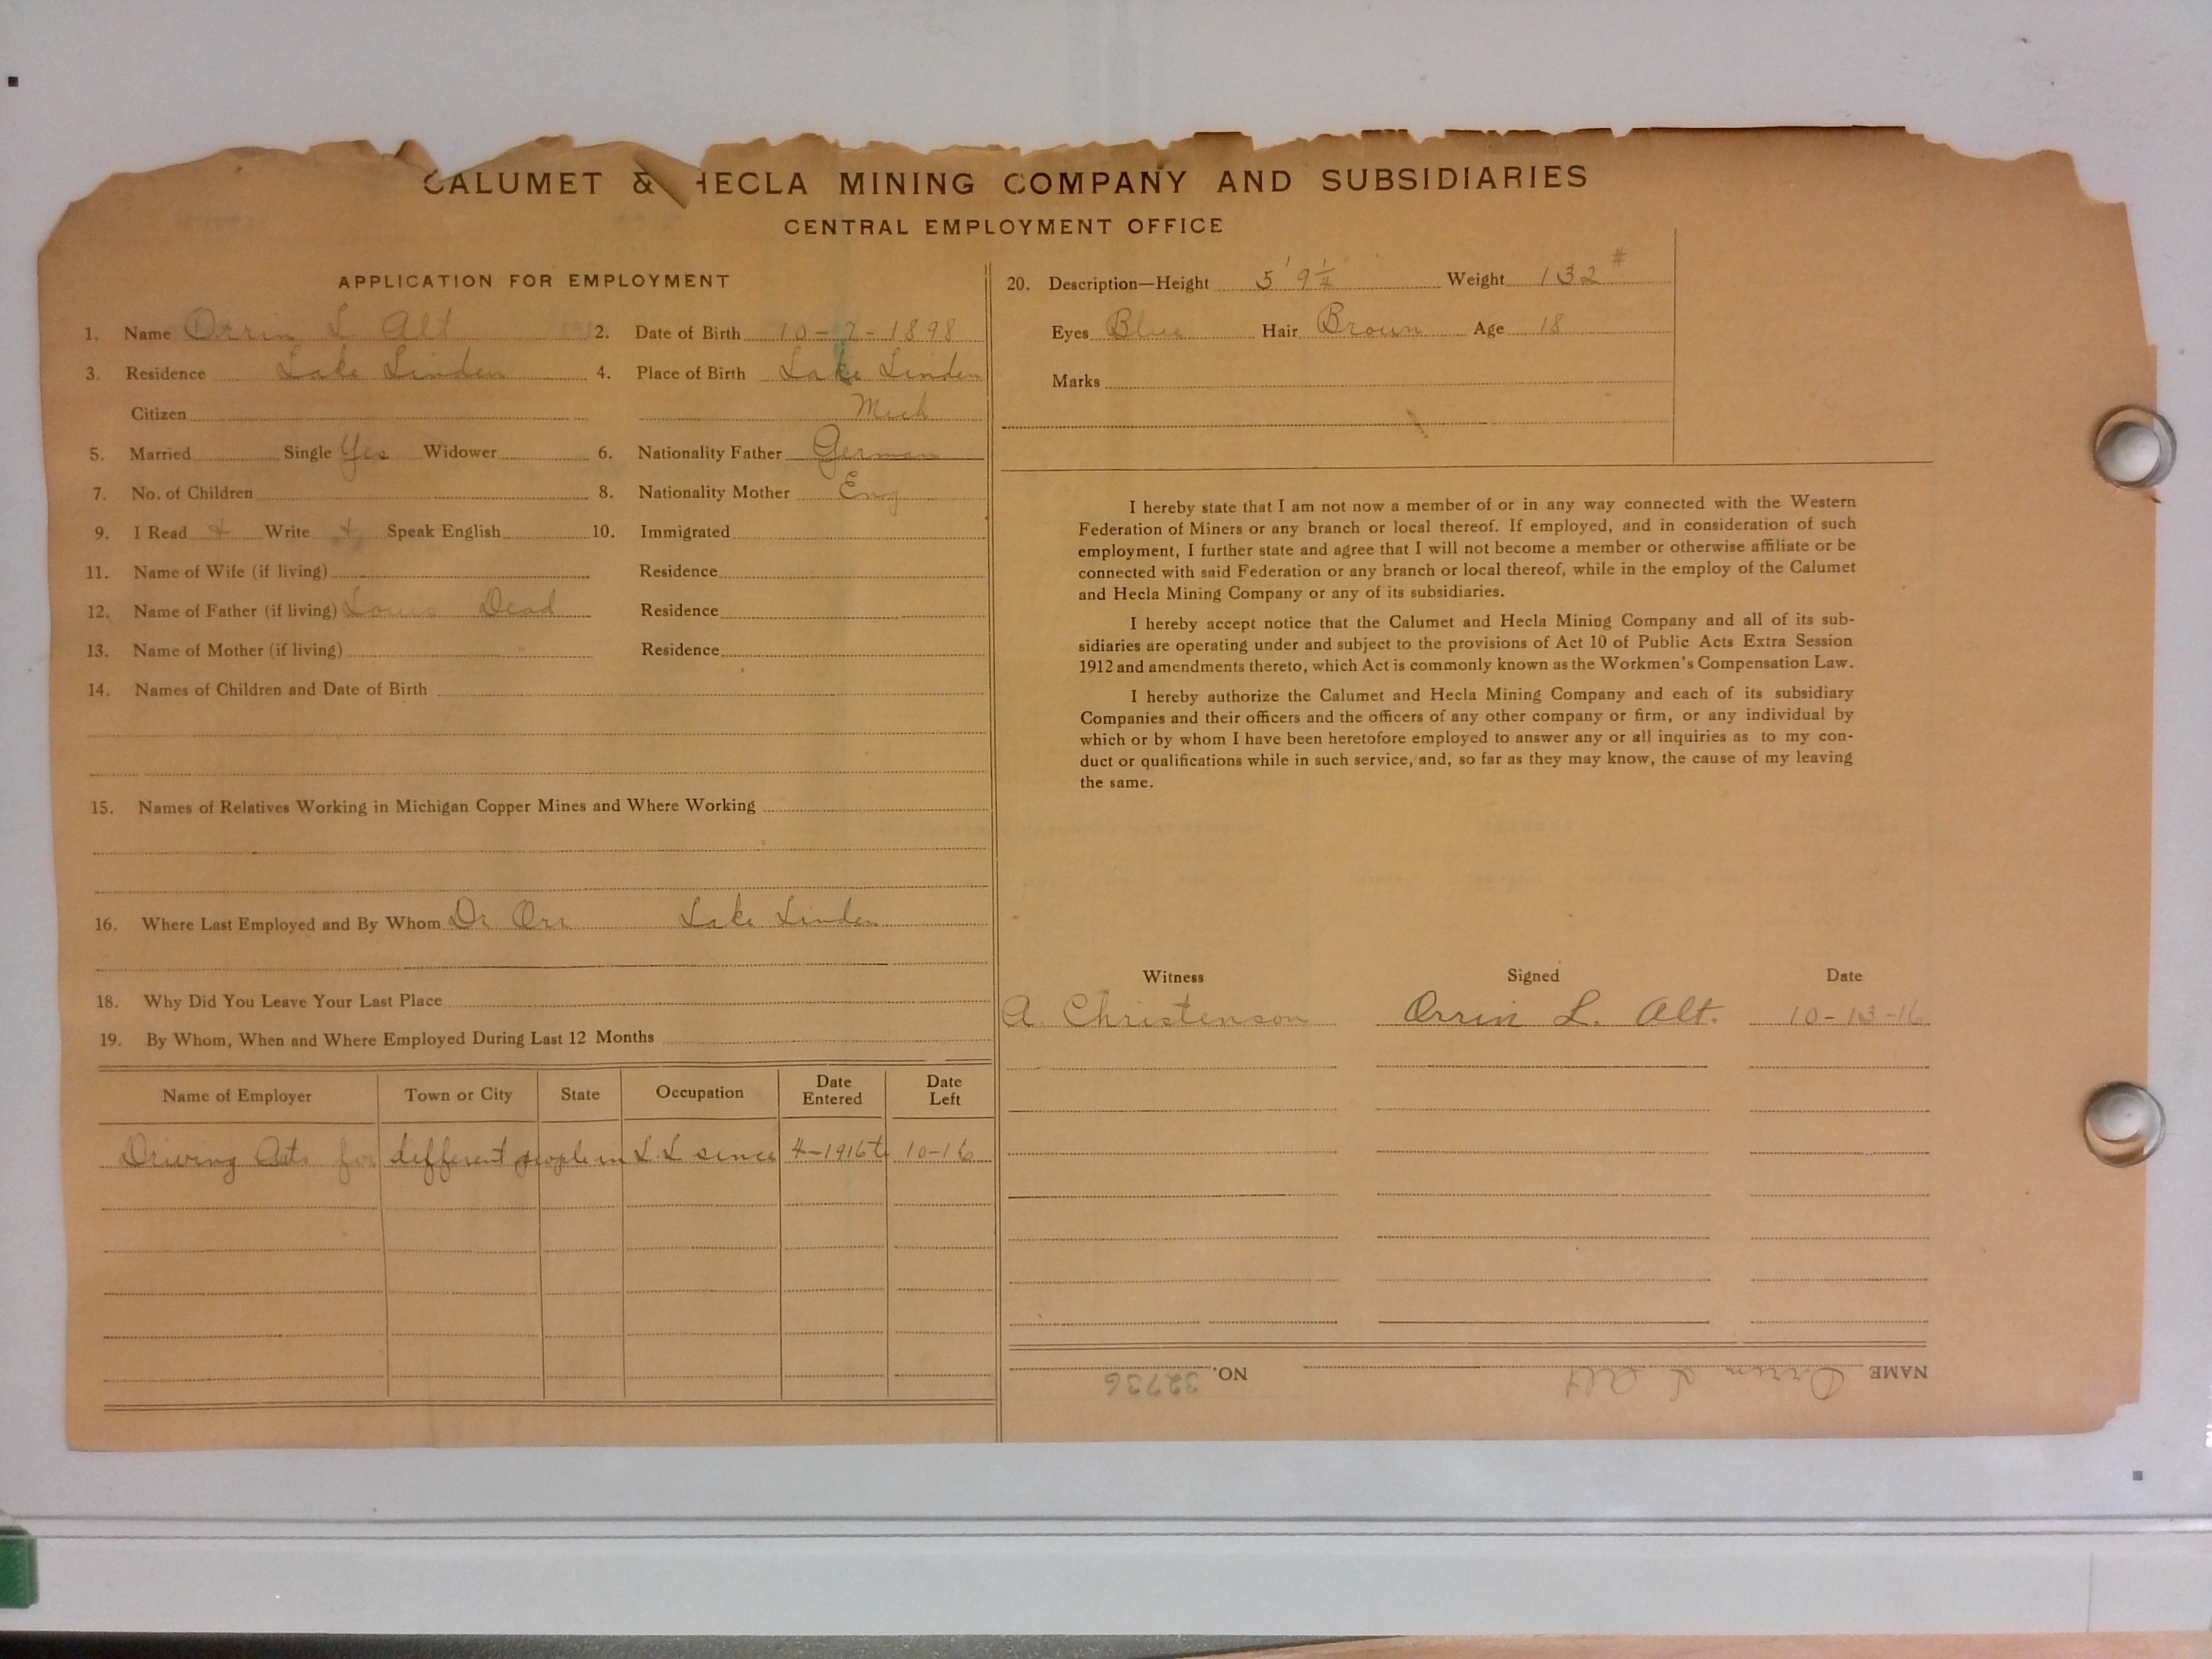 CALUMET & HECLA MINING COMPANY AND SUBSIDIARIES
CENTRAL EMPLOYMENT OFFICE
APPLICATION FOR EMPLOYMENT
1. Name Orrin L Alt 2. Date of Birth 10-7-1898
3. Residence Lake Linden 4. Place of Birth Lake Linden
Citizen Mich
5. Married Single Yes Widower 6. Nationality Father German
7. No. of Children 8. Nationality Mother Eng
9. I Read + Write + Speak English 10. Immigrated
11. Name of Wife (if living) Residence
12. Name of Father (if living) Louis Dead Residence
13. Name of Mother (if living) " Residence
14. Names of Children and Date of Birth
15. Names of Relatives Working in Michigan Copper Mines and Where Working
16. Where Last Employed and By Whom Dr Orr Lake Linden
18. Why Did You Leave Your Last Place
19. By Whom, When and Where Employed During Last 12 Months
Name of Employer Town or City State Occupation Date Entered Date Left
Driving Auto for different people in L L since 4-1916 to 10-16
20. Description—Height 5' 9 1/4 Weight 132 #
Eyes Blue Hair Brown Age 18
Marks
I hereby state that I am not now a member of or in any way connected with the Western
Federation of Miners or any branch or local thereof. If employed, and in consideration of such
employment, I further state and agree that I will not become a member or otherwise affiliate or be
connected with said Federation or any branch or local thereof, while in the employ of the Calumet
and Hecla Mining Company or any of its subsidiaries.
I hereby accept notice that the Calumet and Hecla Mining Company and all of its sub-
sidiaries are operating under and subject to the provisions of Act 10 of Public Acts Extra Session
1912 and amendments thereto, which Act is commonly known as the Workmen's Compensation Law.
I hereby authorize the Calumet and Hecla Mining Company and each of its subsidiary
Companies and their officers and the officers of any other company or firm, or any individual by
which or by whom I have been heretofore employed to answer any or all inquiries as to my con-
duct or qualifications while in such service, and, so far as they may know, the cause of my leaving
the same.
Witness Signed Date
A. Christenson Orrin L. Alt. 10-13-16
NAME Orrin L Alt NO. 32736